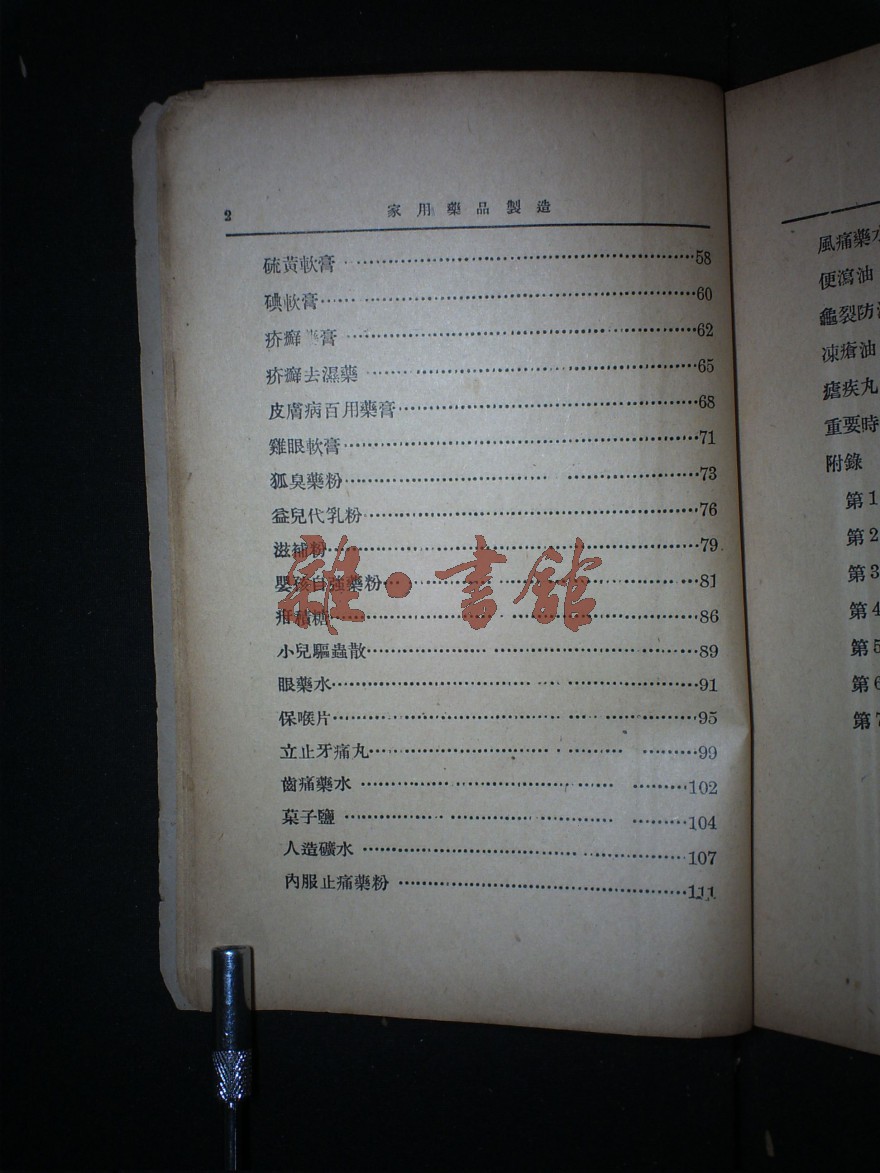 2 家用藥品製造
硫黃軟膏 58
碘軟膏 60
疥癬藥膏 62
疥癬去濕藥 65
皮膚病百用藥膏 68
雞眼軟膏 71
狐臭藥粉 73
益兒代乳粉 76
滋補粉 79
嬰孩自強藥粉 81
疳積糖 86
小兒驅蟲散 89
眼藥水 91
保喉片 95
立止牙痛丸 99
齒痛藥水 102
菓子鹽 104
人造礦水 107
內服止痛藥粉 111
雜·書館
風痛藥水
便瀉油
龜裂防
凍瘡油
瘧疾丸
重要時
附錄
第1
第2
第3
第4
第5
第6
第7